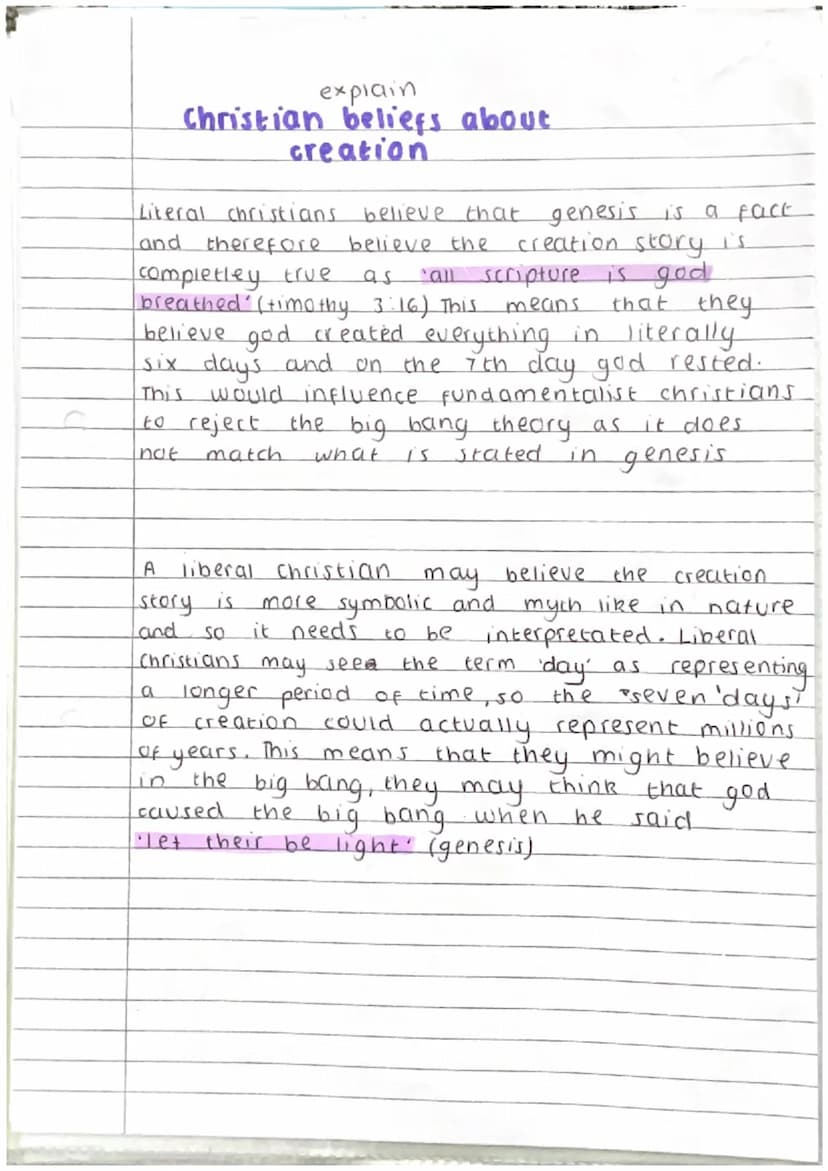 explain
Christian beliefs about
creation
Literal christians believe that genesis is a fact
and therefore believe the creation story is
completley true as 'all scripture is god
breathed' (timothy 3:16) This means that they
believe god created everything in literally
six days and on the 7th day god rested.
This would influence fundamentalist christians
to reject the big bang theory as it does
not match what is stated in genesis
A liberal christian may believe the creation
story is more symbolic and myth like in nature
and so it needs to be interpretated. Liberal
christians may see the term 'day' as representing
a longer period of time, so the "seven 'days'
of creation could actually represent millions
of years. This means that they might believe
in the big bang, they may think that god
caused the big bang when he said
'let their be light' (genesis)